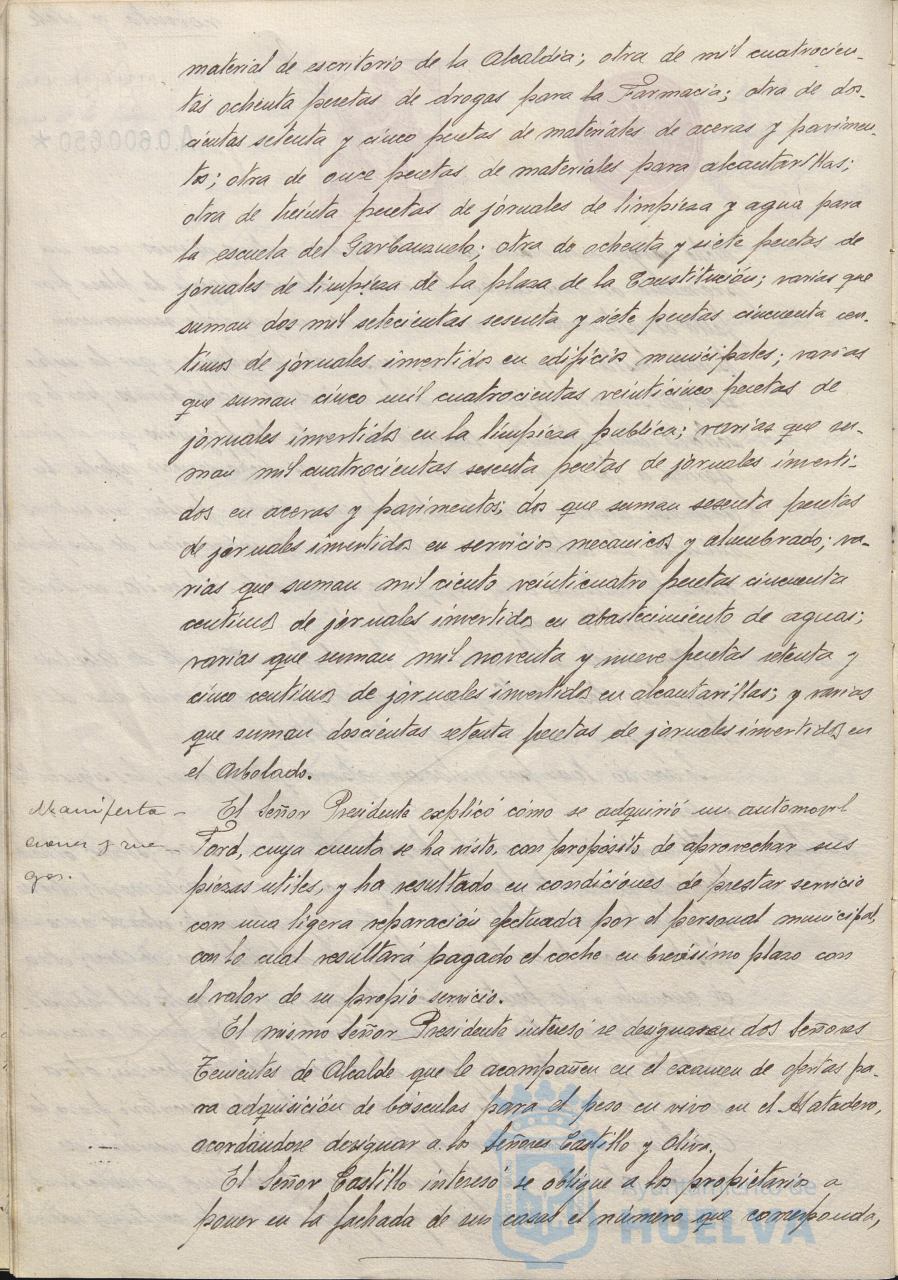 material de escritorio de la Alcaldia; otra de mil cuatrocien-
tas ochenta pesetas de drogas para la Farmacia; otra de dos-
cientas setenta y cinco pesetas de materiales de aceras y pavimen-
tos; otra de once pesetas de materiales para alcantarillas;
otra de treinta pesetas de jornales de limpieza y agua para
la escuela del Garbanzuelo; otra de ochenta y siete pesetas de
jornales de limpieza de la plaza de la Constitución; varias que
suman dos mil setecientas sesenta y siete pesetas cincuenta cen-
timos de jornales invertidos en edificios municipales; varias
que suman cinco mil cuatrocientas veinticinco pesetas de
jornales invertidos en la limpieza publica; varias que su-
man mil cuatrocientas sesenta pesetas de jornales inverti-
dos en aceras y pavimentos; dos que suman sesenta pesetas
de jornales invertidos en servicios mecanicos y alumbrado; va-
rias que suman mil ciento veinticuatro pesetas cincuenta
centimos de jornales invertidos en abastecimiento de aguas;
varias que suman mil noventa y nueve pesetas setenta y
cinco centimos de jornales invertidos en alcantarillas; y varias
que suman doscientas setenta pesetas de jornales invertidos en
el Arbolado.
Manifesta-
ciones y rue-
gos.
El Señor Presidente explicó cómo se adquirió un automovil
Ford, cuya cuenta se ha visto, con propósito de aprovechar sus
piezas utiles, y ha resultado en condiciones de prestar servicio
con una ligera reparación efectuada por el personal municipal,
con lo cual resultará pagado el coche en brevísimo plazo con
el valor de su propio servicio.
El mismo Señor Presidente interesó se designasen dos Señores
Tenientes de Alcalde que le acompañen en el examen de ofertas pa-
ra adquisición de básculas para el peso en vivo en el Matadero,
acordándose designar a los Señores Castillo y Oliva.
El Señor Castillo interesó se obligue a los propietarios a
poner en la fachada de sus casas el número que corresponda,
Ayuntamiento de
HUELVA
A.0.600.650 *